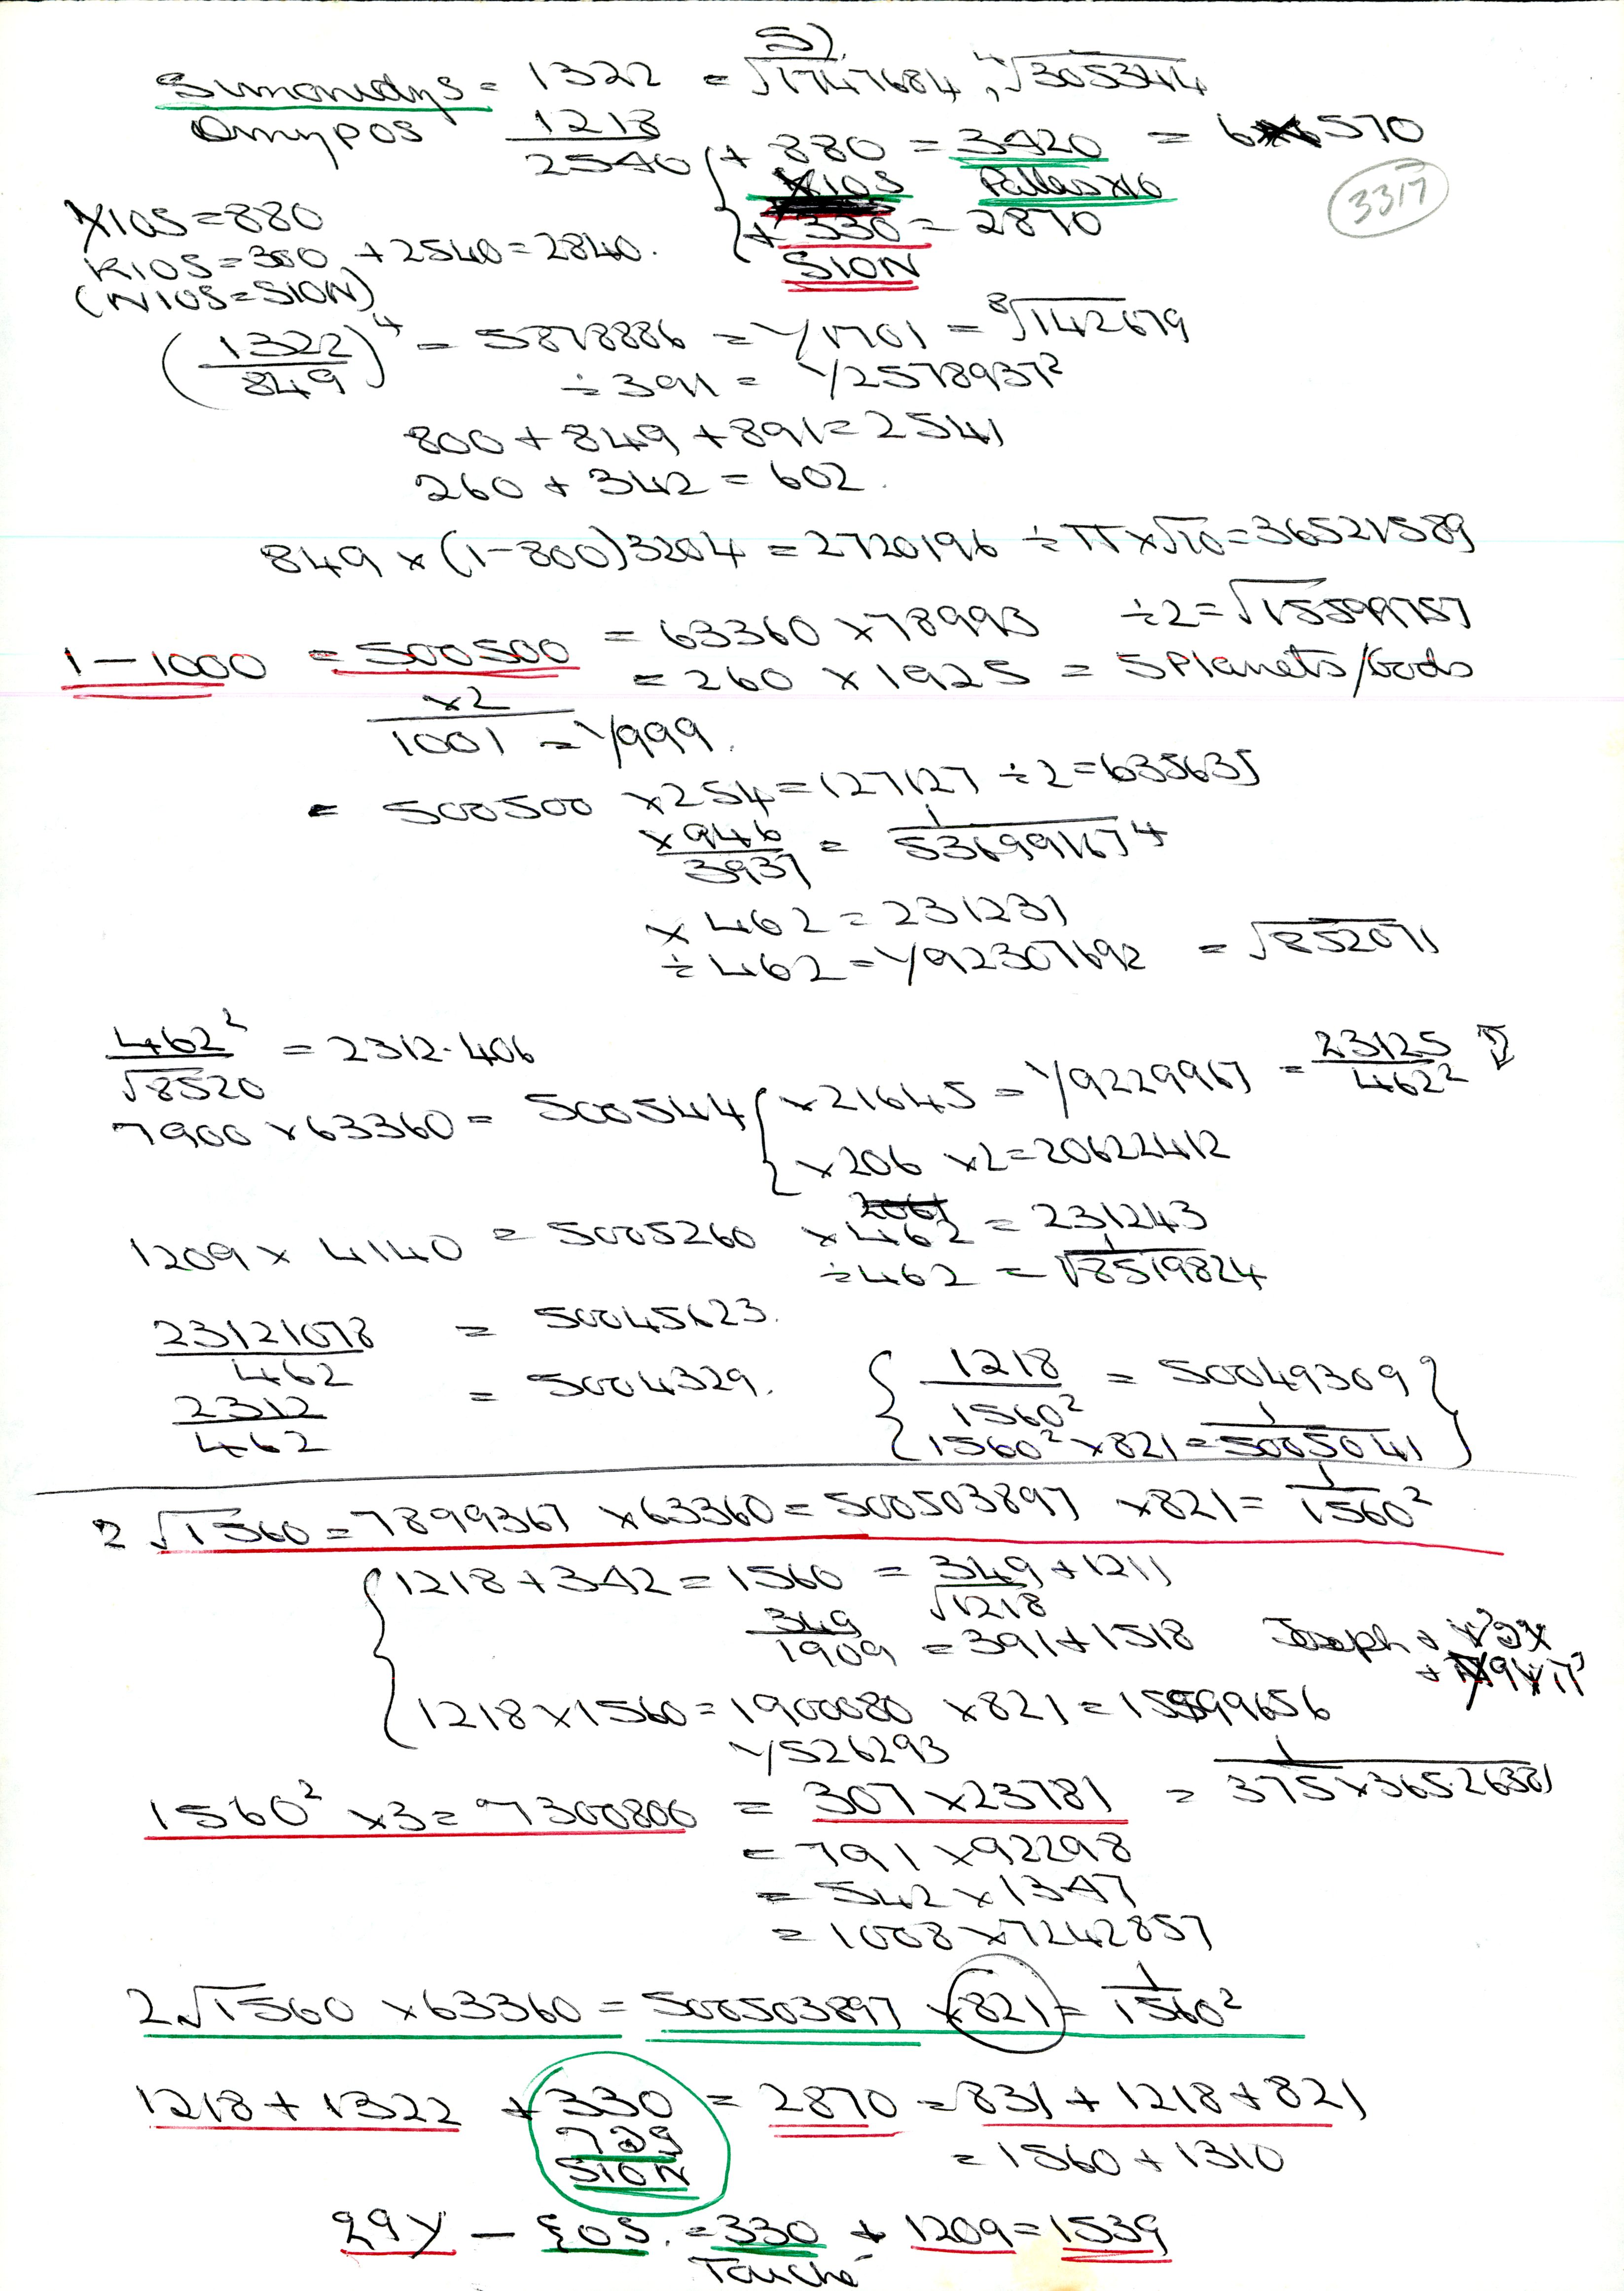 5)
Simonidys = 1322 = √1747684, ⁴√305344
Omypos 1218
2540 { + 880 = 3420 = 6 570
XIOS Pallas x10
3317
XIOS = 880
+ 330 = 2870
SION
KIOS = 300 + 2540 = 2840.
(NIOS = SION)
(1322/849)⁴ = 5878886 = 1/1701 = ⁸√142679
÷ 391 = 1/2578937²
800 + 849 + 891 = 2541
260 + 342 = 602.
849 x (1-800) 3204 = 2720196 ÷ π x √10 = 36521589
1-1000 = 500500 = 63360 x 78993 ÷2 = √15599757
= 260 x 1925 = 5 Planets/Gods
x2
1001 = 1/999.
= 500500 x 254 = 127127 ÷ 2 = 635635
x 946/3937 = 1/536991674
x 462 = 231231
÷ 462 = 1/92307692 = √852071
462²/√8520 = 2312.406
7900 x 63360 = 500544 { x 21645 = 1/9229967 = 23125/462²
x 206 x2 = 20622412
1209 x 4140 = 5005260 x 462 = 231243
÷ 462 = 1/√8519824
23121078/462 = 50045623.
2312/462 = 5004329.
{ 1218/1560² = 50049309 }
{ 1560² x 821 = 1/5005041 }
2√1560 = 7899367 x 63360 = 500503897 x 821 = 1/1560²
{ 1218 + 342 = 1560 = 349 + 1211
√1218
349
1909 = 391 + 1518 Joseph +
1218 x 1560 = 1900080 x 821 = 15599656
1/526293
1560² x 3 = 7300800 = 307 x 23781 = 1/375 x 36526381
= 791 x 92298
= 542 x 1347
= 1008 x 7242857
2√1560 x 63360 = 500503897 x 821 = 1/1560²
1218 + 1322 + 330 = 2870 = 831 + 1218 + 821
SION
= 1560 + 1310
= 330 + 1209 = 1539
Touché